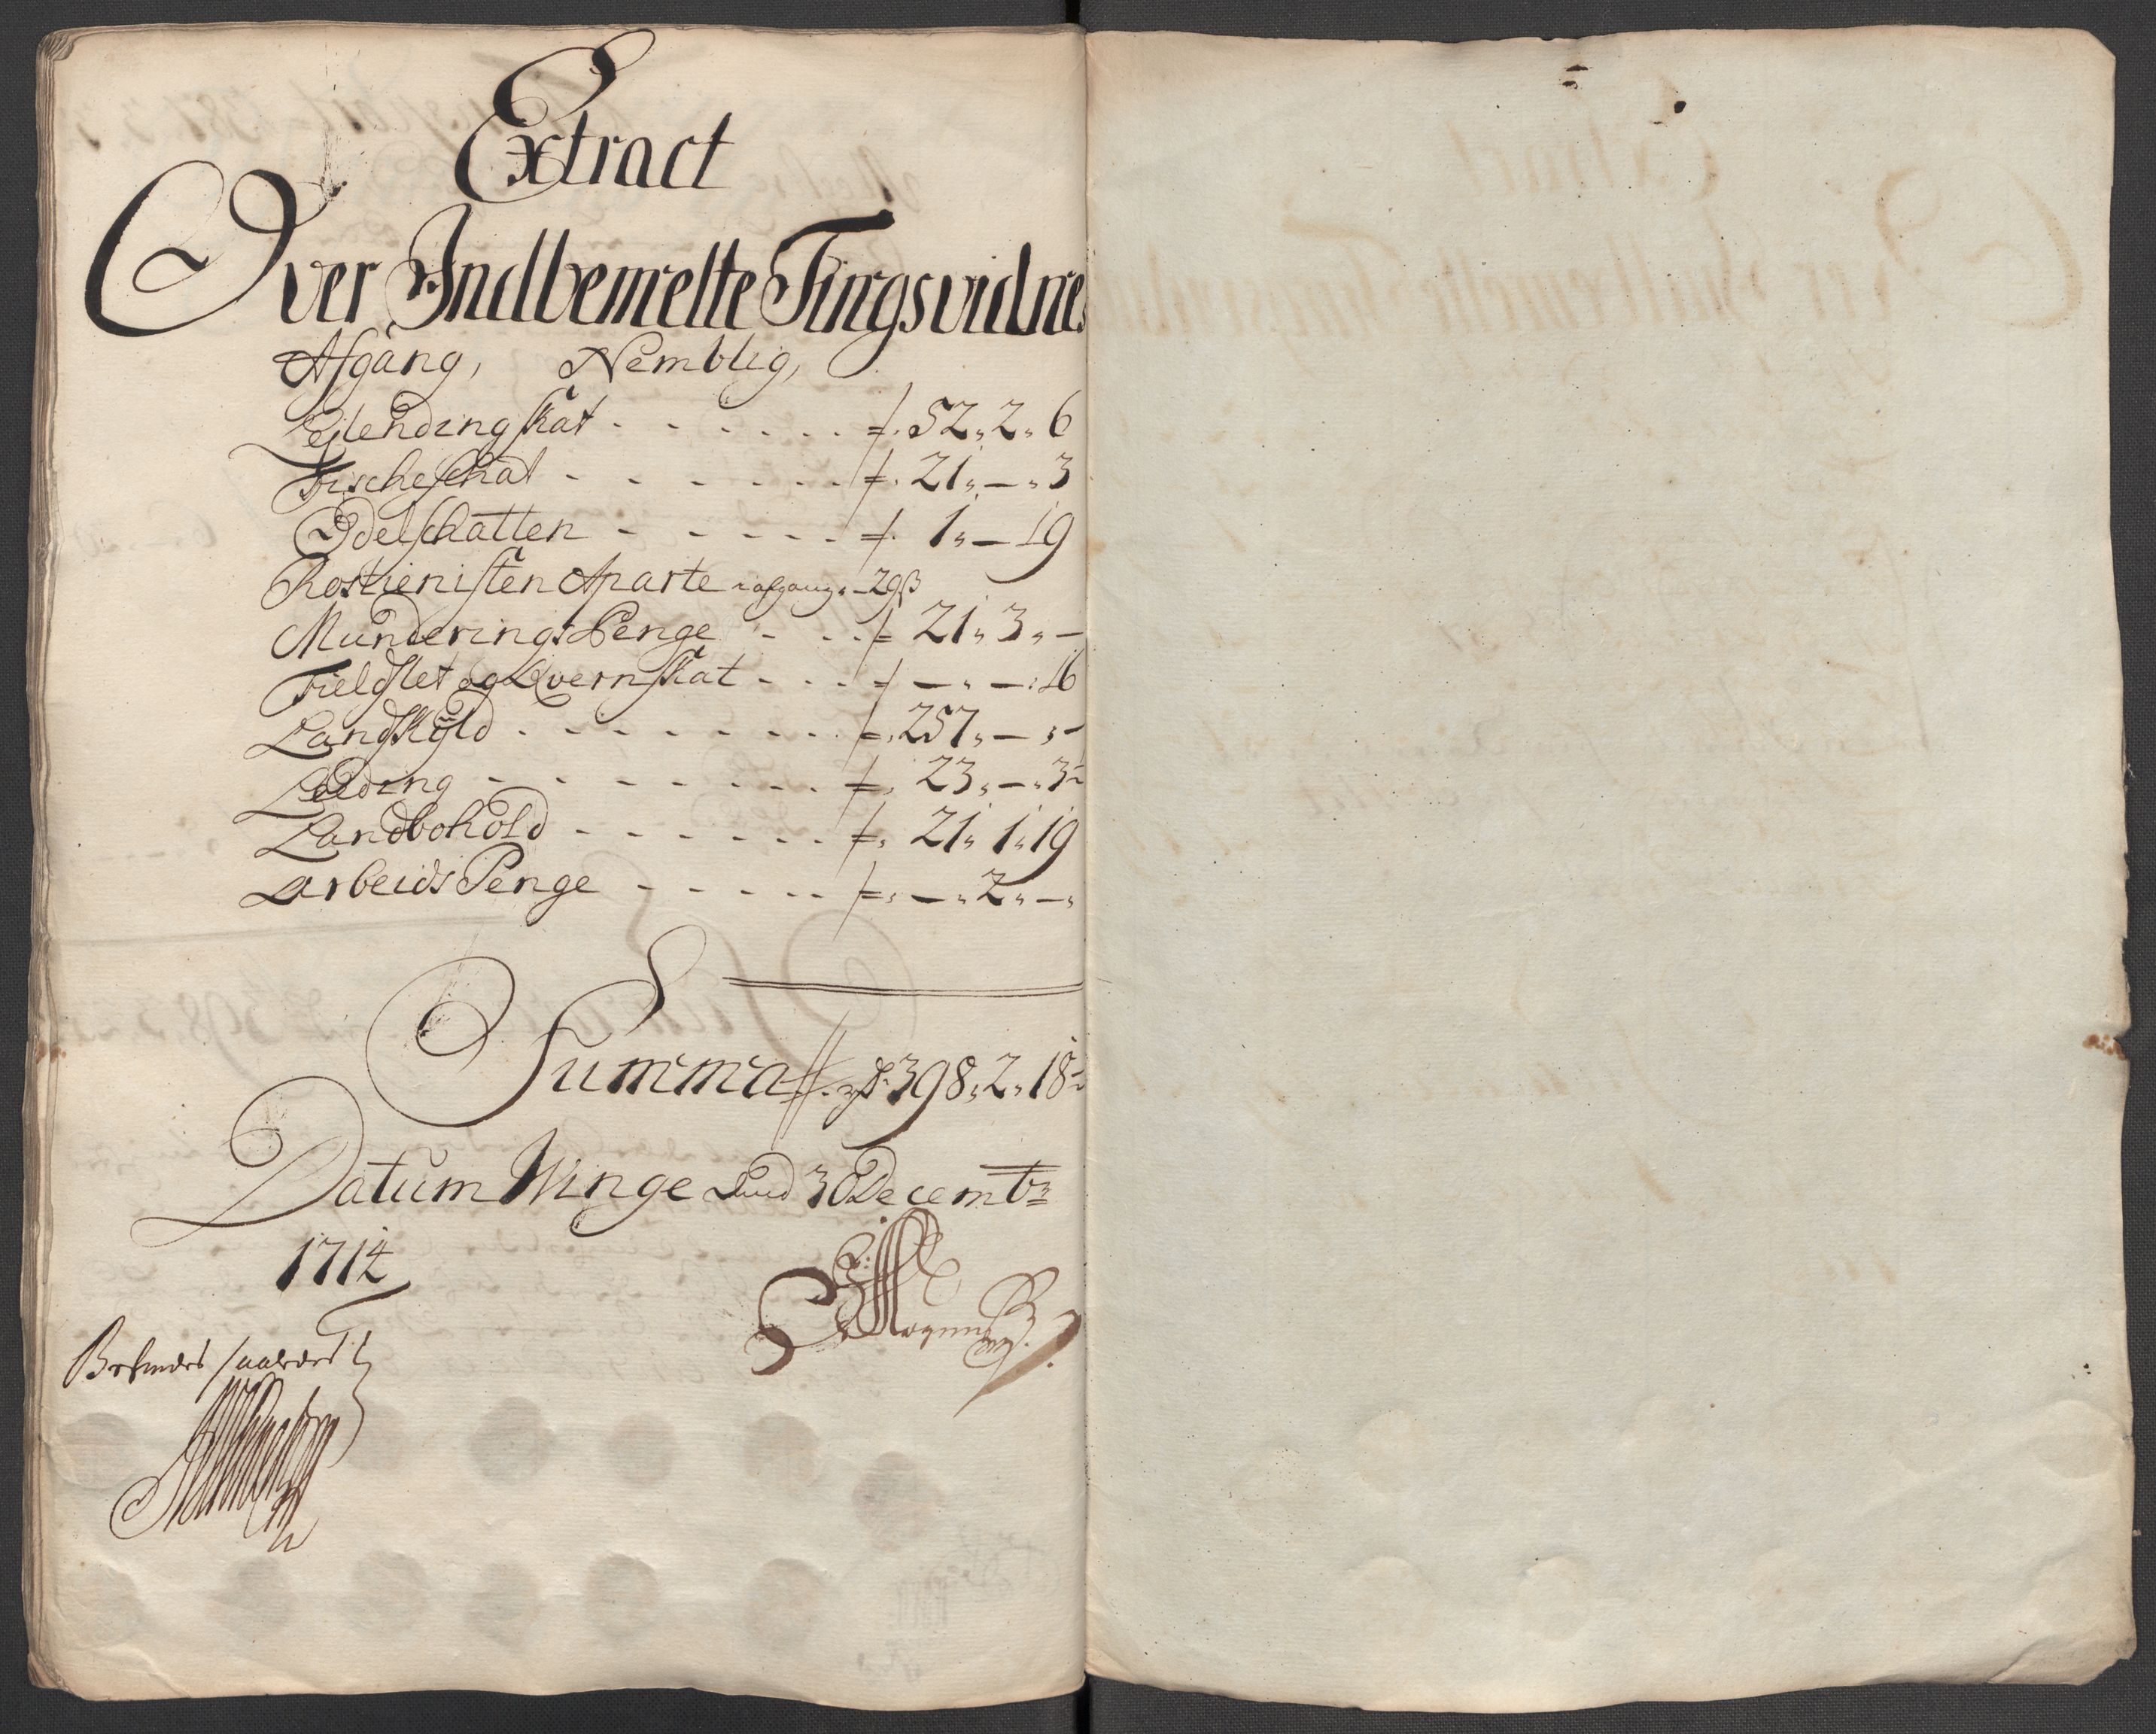 Extract
Over Indbemelte Tingsvidnes
Afgang, Nemblig,
Leilending skat - - - - - - 52 „ 2 „ 6
Fischeschat - - - - - - 21 „ — „ 3
Odelschatten - - - - - 1 „ — 19
Rostienisten Aparte afgang - 29 ß
Munderings Penge - - - 21 „ 3 „ —
Fieldslet og Qvernskat - - - — „ — „ 16
Landskyld - - - - - - - 257 „ — „ —
Leeding - - - - - - - 23 „ — „ 3½
Landbohold - - - - - - 21 „ 1 „ 19
Arbeids Penge - - - - - — „ 2 „ —
Summa 398 „ 2 „ 18½
Datum Winge 30 Decembr
1714
Befindes saaledes